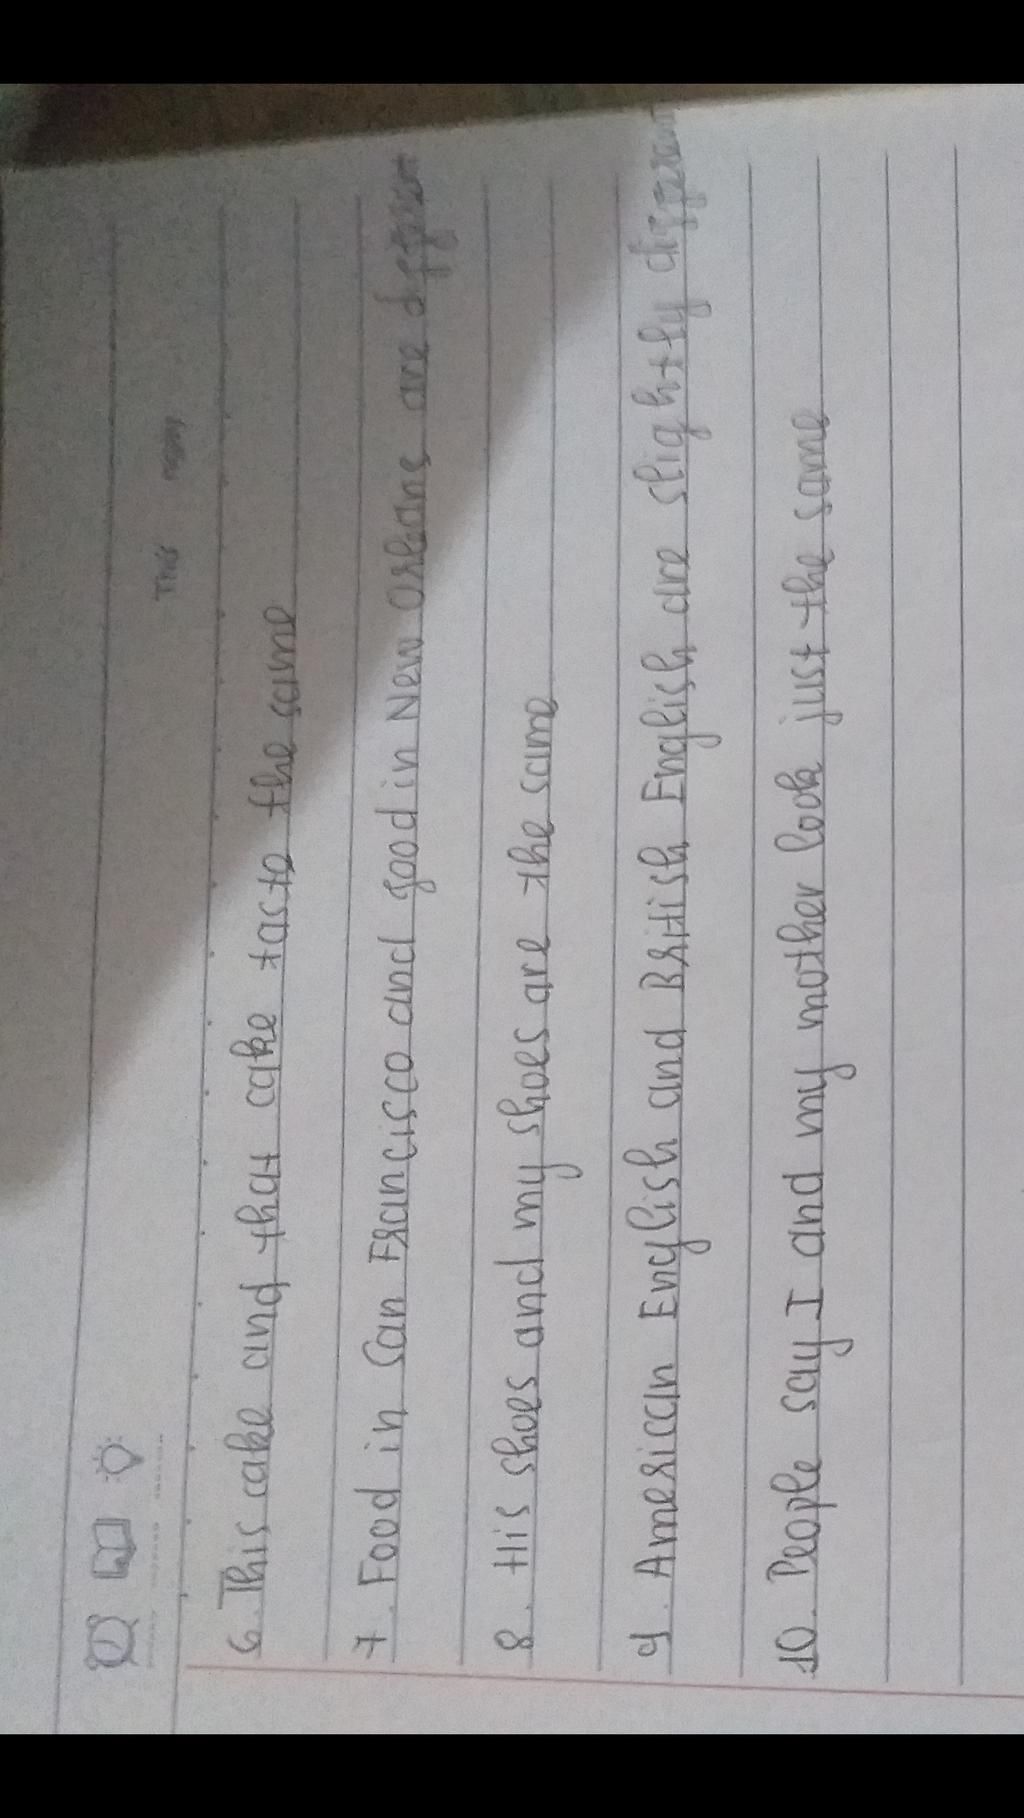 This
6. This cake and that cake taste the same
7. Food in San Francisco and food in New Orleans are different
8. His shoes and my shoes are the same
9. American English and British English are slightly different
10. People say I and my mother look just the same